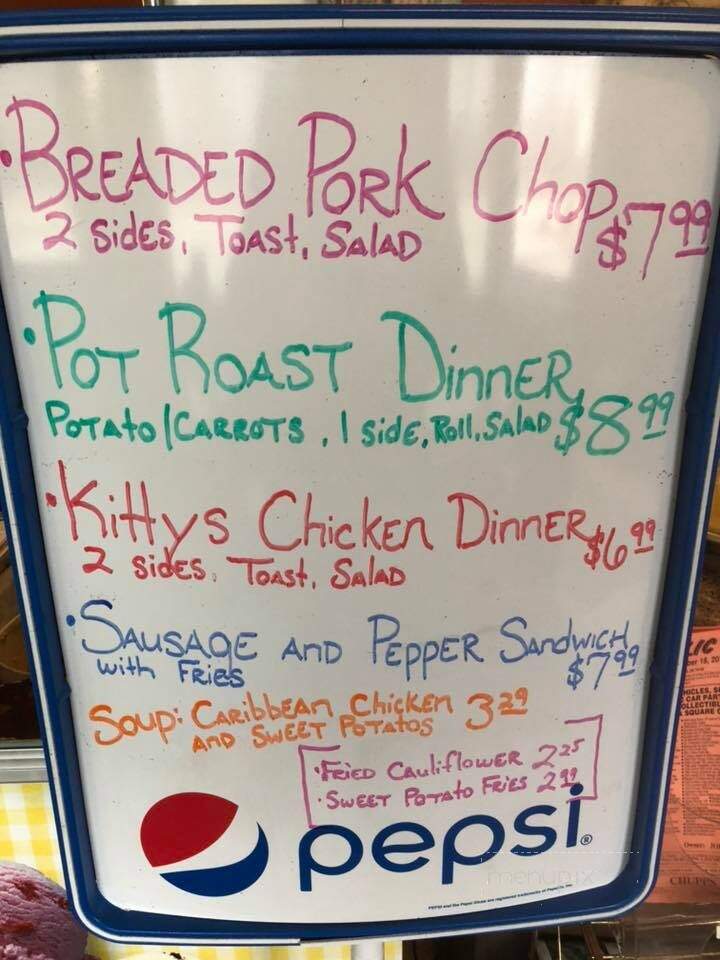 •Breaded Pork Chop $7.99
2 Sides, Toast, Salad
•Pot Roast Dinner $8.99
Potato/Carrots, 1 side, Roll, Salad
•Kittys Chicken Dinner $6.99
2 sides, Toast, Salad
•Sausage and Pepper Sandwich $7.99
with Fries
Soup: Caribbean Chicken 3.29
and Sweet Potatos
•Fried Cauliflower 2.25
•Sweet Potato Fries 2.99
pepsi®
menupix